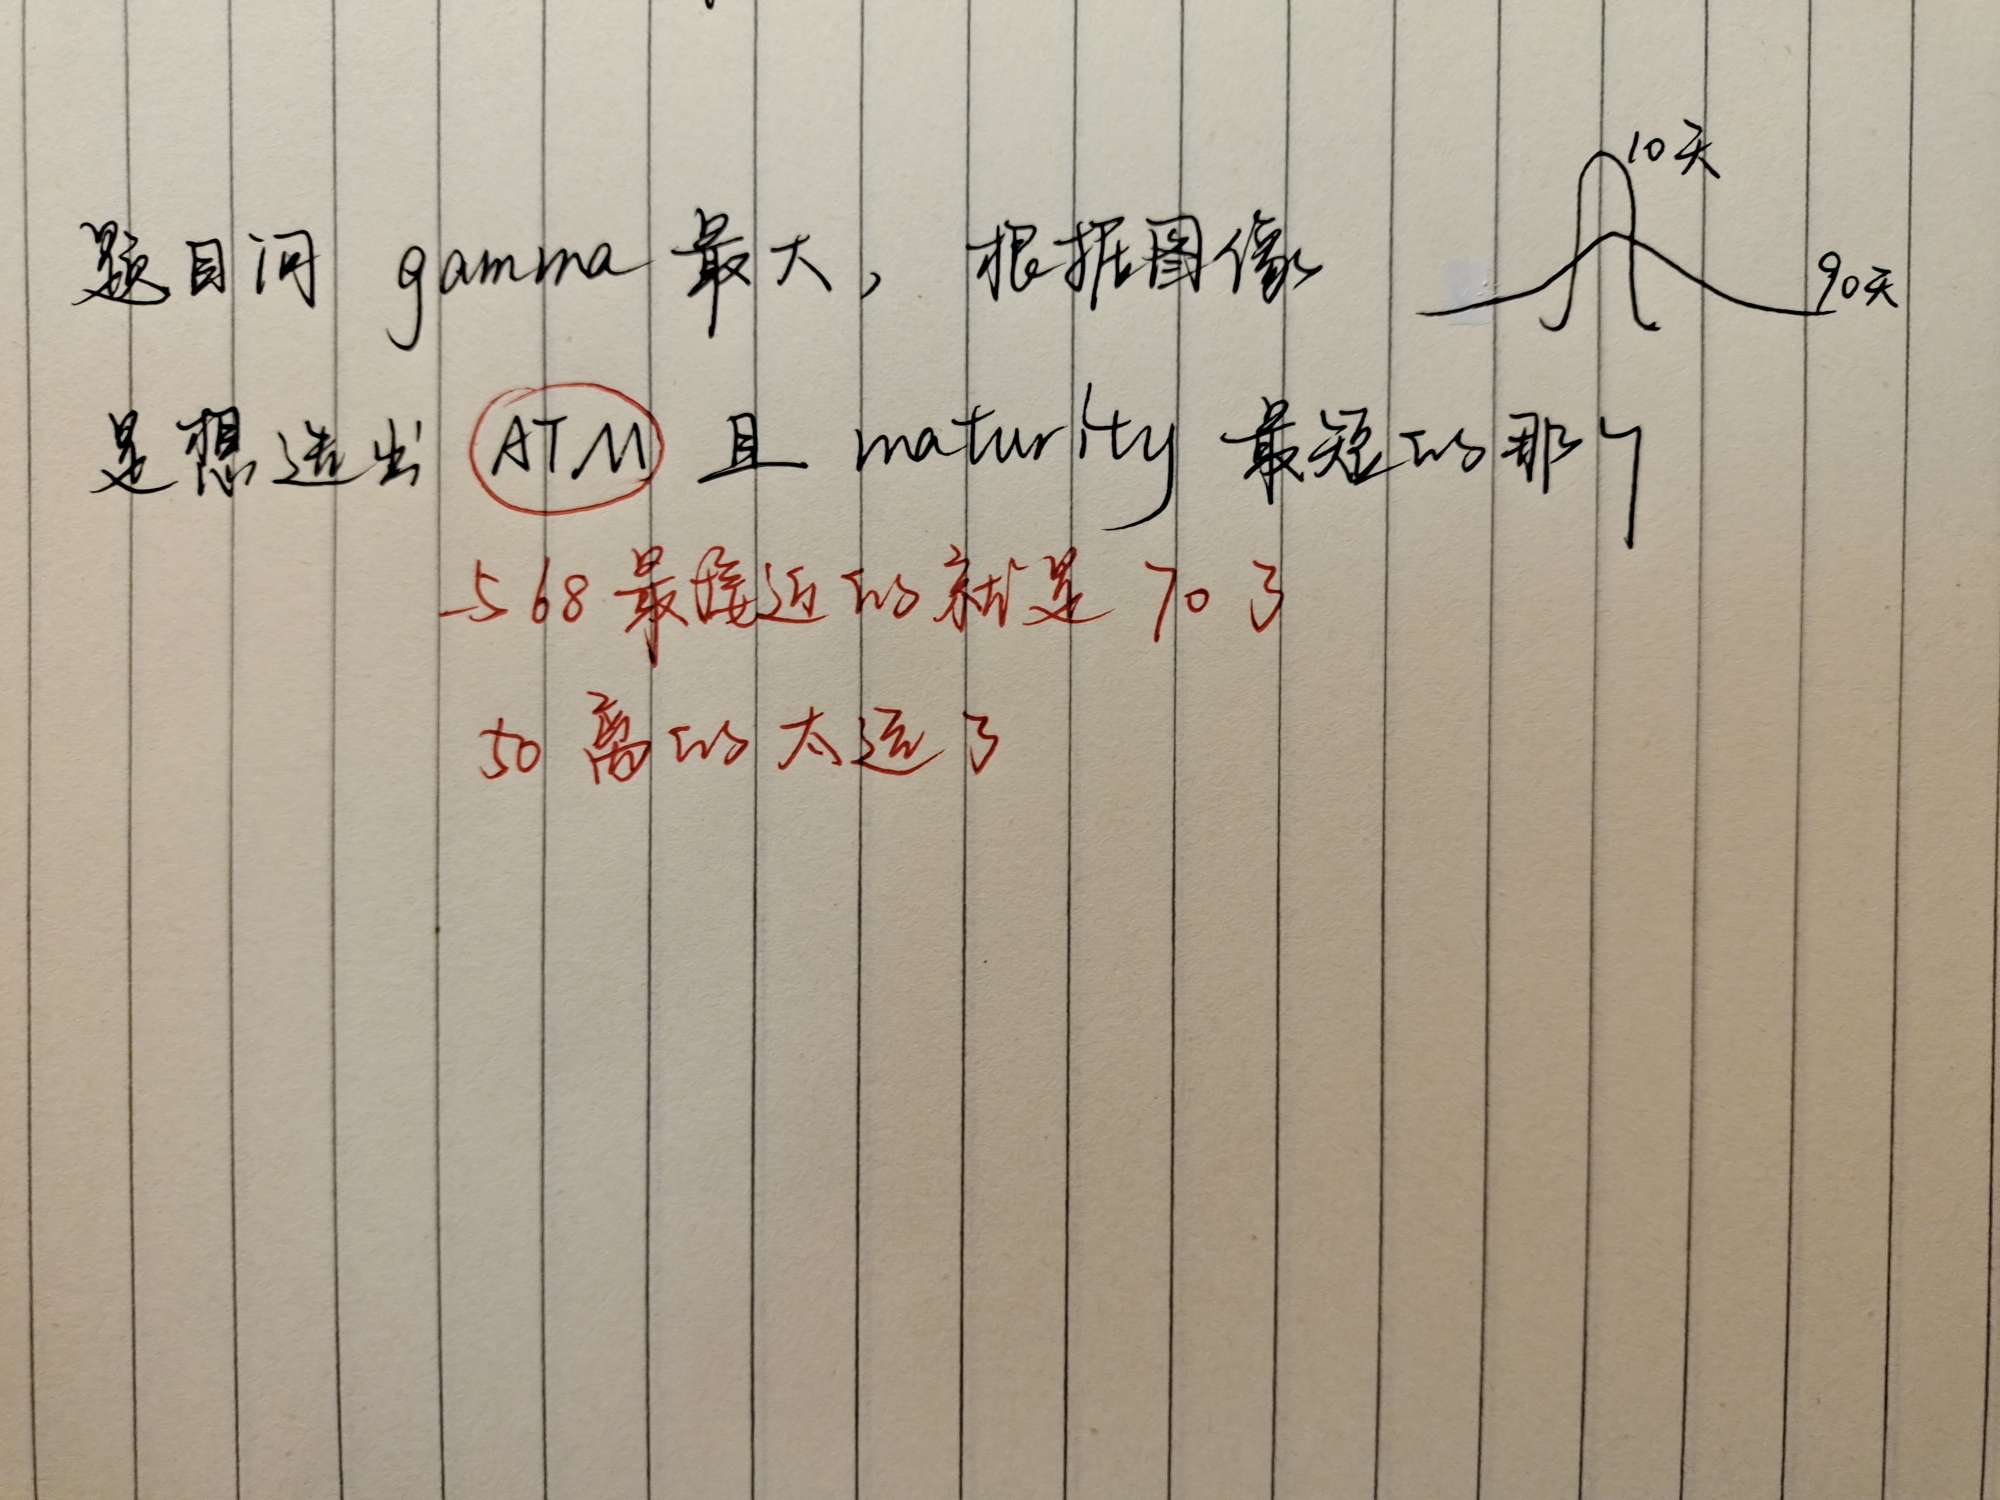 题目问 gamma 最大, 根据图像
10天
90天
是想选出 ATM 且 maturity 最短的那个
与68最接近的就是70了
50离的太远了